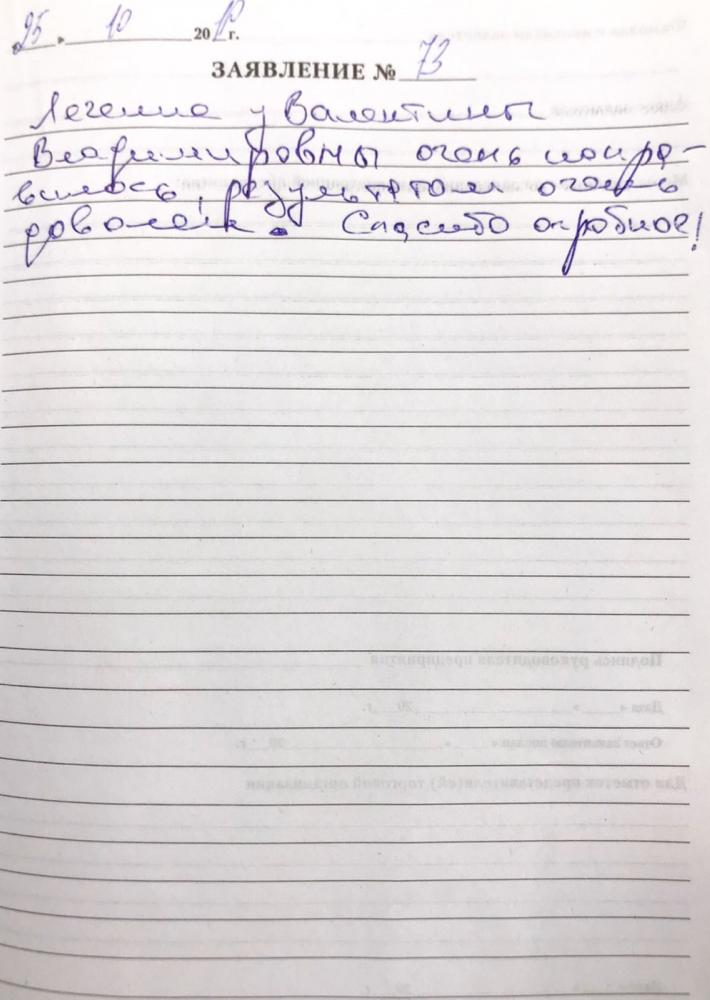 25 » 10 20 г.
ЗАЯВЛЕНИЕ № 73
Лечение у Валентины
Владимировны очень понра-
вилось, результатом очень
доволен. Спасибо огромное!